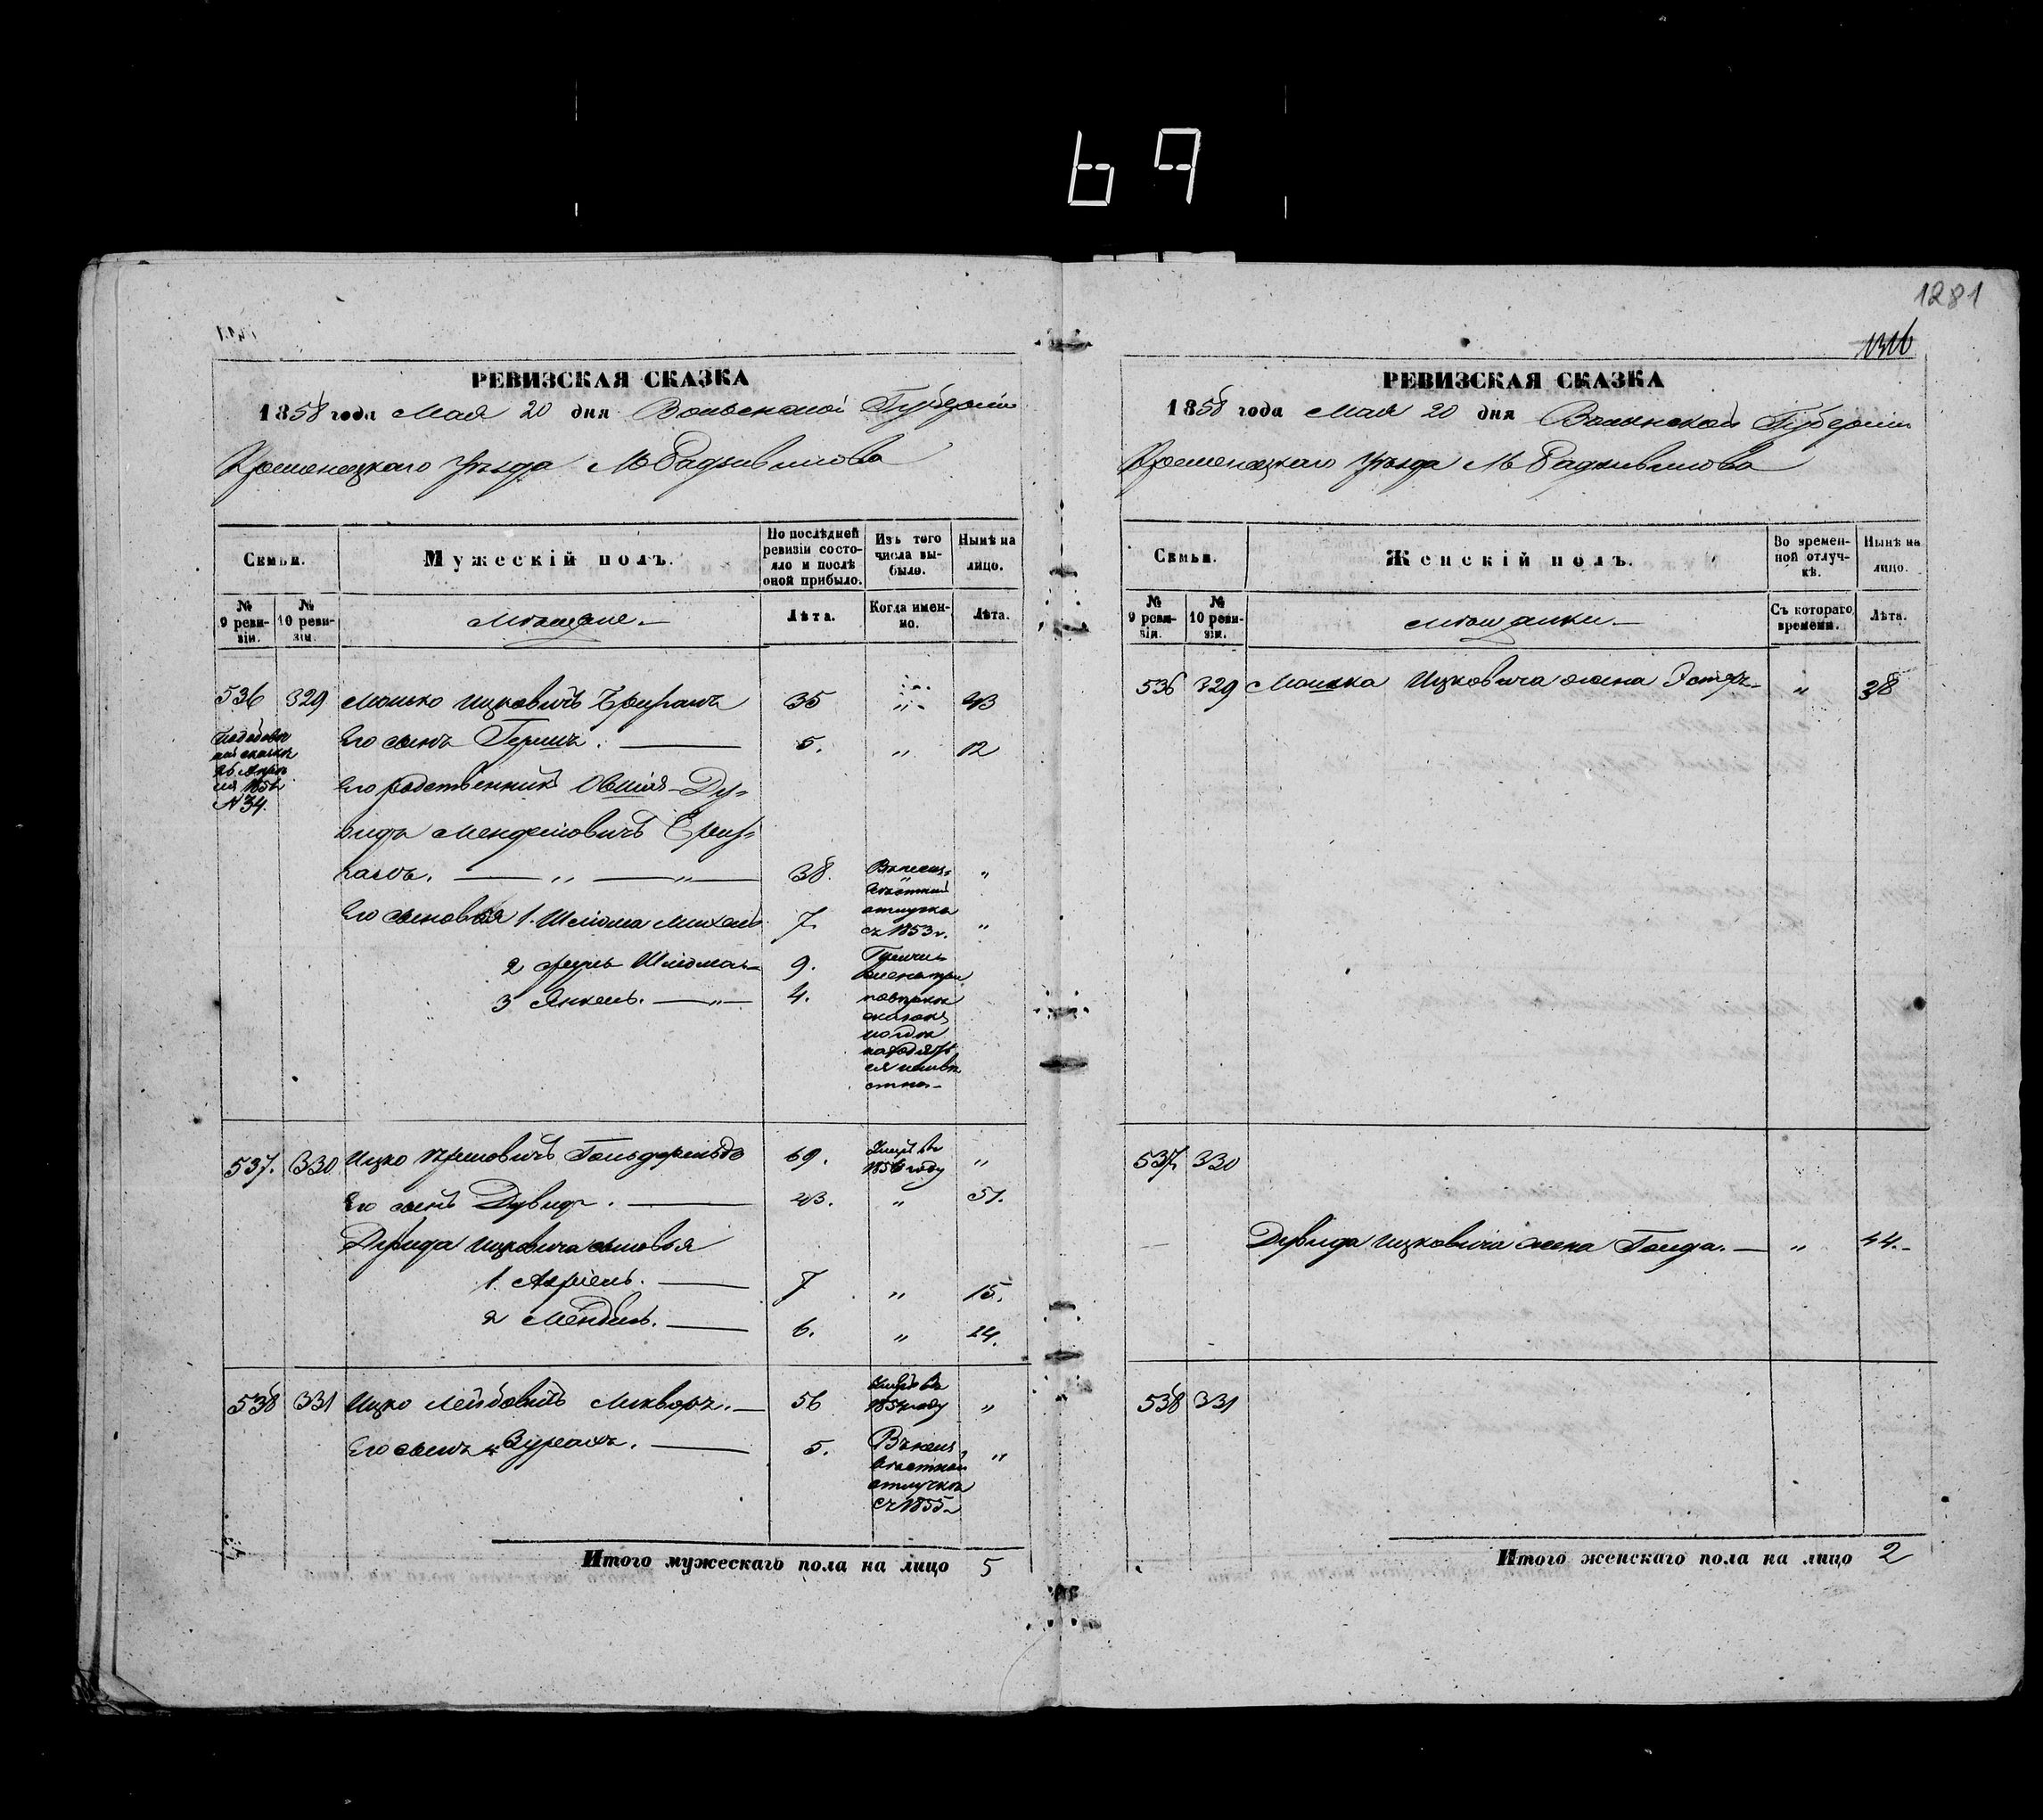 69
1281
1316
РЕВИЗСКАЯ СКАЗКА
1858 года Мая 20 дня Волынской Губернии
Кременецкаго Уѣзда М Радзивилова
Семьи.
Мужескій полъ.
По послѣдней ревизіи состояло и послѣ оной прибыло.
Изъ того числа выбыло.
Нынѣ на лицо.
№ 9 ревизіи.
№ 10 ревизіи.
Мѣщане.
Лѣта.
Когда именно.
Лѣта.
536 329 Мошко Ицковичъ 35 " 43
Его сынъ Гершъ. 5. " 12
Его родственникъ Овшія-Ду-
видъ Менделовичъ
38. "
Его сыновья 1. Шліома Михель 7. "
2 Шліома 9.
3 Янкель. 4.
Въ безъ-
отлучкѣ
съ 1853 г.
537. 330 Ицко Гольдфельдъ 69. Умеръ въ 1856 году "
Его сынъ Дувидъ. 43. " 51.
Дувида Ицковича сыновья
1. Азріель. 7 " 15.
2 Мендель. 6. " 14.
538 331 Ицко Лейбовичъ 56 Умеръ въ 1854 году "
Его сынъ 5. "
отлучкѣ
съ 1855 г.
Итого мужескаго пола на лицо 5
РЕВИЗСКАЯ СКАЗКА
1858 года Мая 20 дня Волынской Губернии
Кременецкаго Уѣзда М Радзивилова
Семьи.
Женскій полъ.
Во временной отлучкѣ.
Нынѣ на лицо.
№ 9 ревизіи.
№ 10 ревизіи.
Мѣщанки.
Съ котораго времени.
Лѣта.
536 329 Мошка Ицковича жена Эстеръ " 38
537 330
Дувида Ицковича жена Голда. " 44.
538 331
Итого женскаго пола на лицо 2